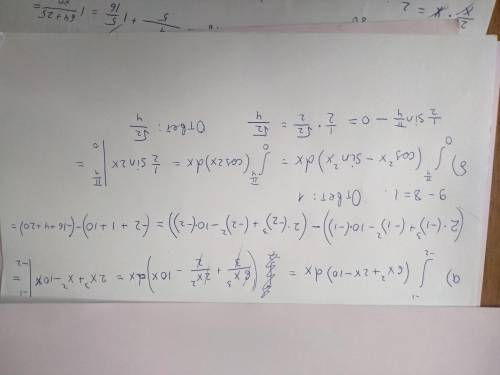 a) ∫_{-2}^{-1} (6x²+2x-10) dx = (6x³/3 + 2x²/2 - 10x) dx = 2x³+x²-10x |_{-2}^{-1} =
(2·(-1)³+(-1)²-10·(-1)) - (2·(-2)³+(-2)²-10·(-2)) = (-2+1+10)-(-16+4+20) =
9-8=1. Ответ: 1
б) ∫_{0}^{π/4} (cos²x - sin²x) dx = ∫_{0}^{π/4} (cos2x) dx = 1/2 sin2x |_{0}^{π/4} =
1/2 sin π/4 - 0 = 1/2 · √2/2 = √2/4 Ответ: √2/4